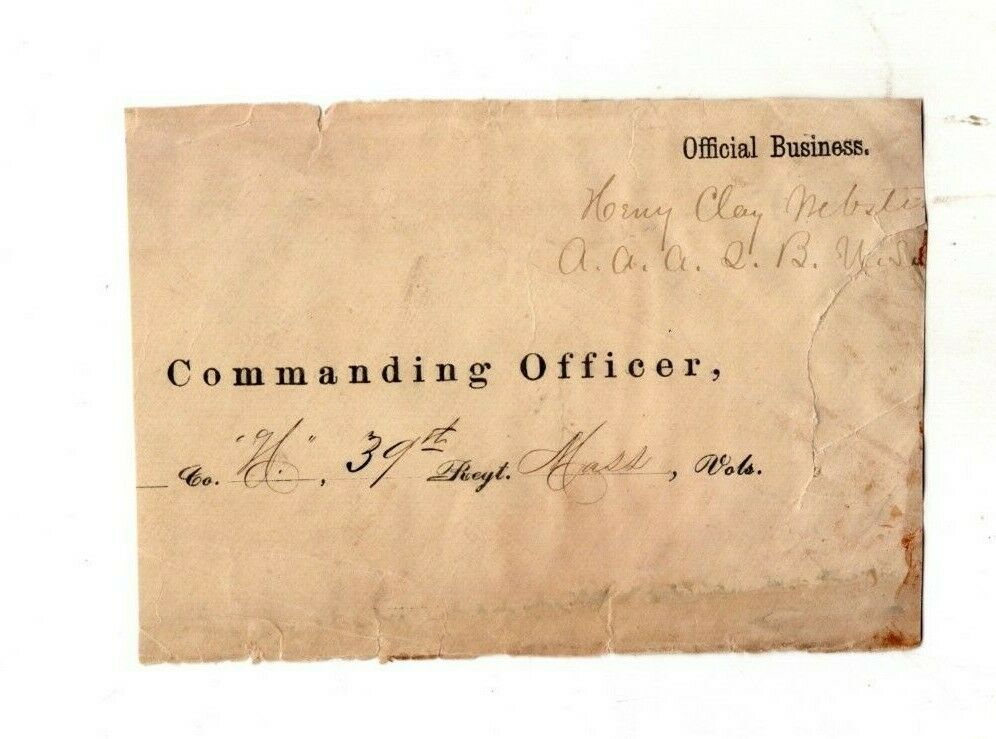 Official Business.
Henry Clay Webster
A. A. A. Q. B. U.S.
Commanding Officer,
Co. "H.", 39st Regt. Mass, Vols.